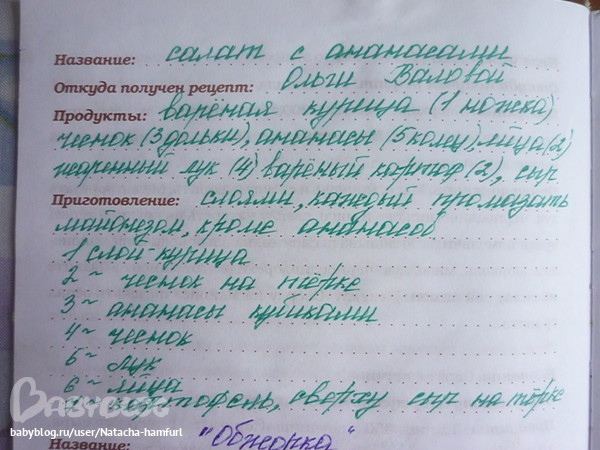 Название: салат с ананасами
Откуда получен рецепт: Ольги Валовой
Продукты: варёная курица (1 ножка)
чеснок (3 дольки), ананасы (5 колец), яйца (2)
жаренный лук (4) варёный картоф (2), сыр
Приготовление: слоями, каждый промазать
майонезом, кроме ананасов
1 слой - курица
2 ~ чеснок на тёрке
3 ~ ананасы кубиками
4 ~ чеснок
6 ~ лук
6 ~ яйца
картофель, сверху сыр на тёрке
BABYBLOG
babyblog.ru/user/Natacha-hamfurl
Название: "Обжорка"